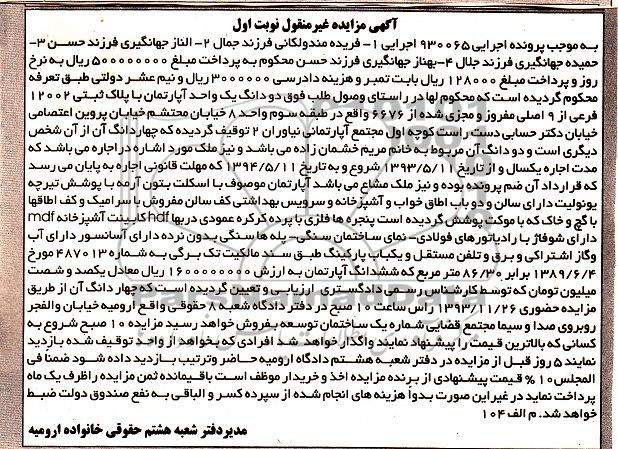 آگهی مزایده غیرمنقول نوبت اول
به موجب پرونده اجرایی ۹۳۰۰۶۵ اجرایی ۱- فریده مندولکانی فرزند جمال ۲- الناز جهانگیری فرزند حسن ۳-
حمیده جهانگیری فرزند جلال ۴-بهناز جهانگیری فرزند حسن محکوم به پرداخت مبلغ ۵۰۰۰۰۰۰۰۰ ریال به نرخ
روز و پرداخت مبلغ ۱۲۸۰۰۰ ریال بابت تمبر و هزینه دادرسی ۳۰۰۰۰۰۰ ریال و نیم عشر دولتی طبق تعرفه
محکوم گردیده است که محکوم لها در راستای وصول طلب فوق دو دانگ یک واحد آپارتمان با پلاک ثبتی ۱۲۰۰۲
فرعی از ۹ اصلی مفروز و مجزی شده از ۶۶۷۶ واقع در طبقه سوم واحد ۸ خیابان محتشم خیابان پروین اعتصامی
خیابان دکتر حسابی دست راست کوچه اول مجتمع آپارتمانی نیاوران ۲ توقیف گردیده که چهاردانگ آن از آن شخص
دیگری است و دو دانگ آن مربوط به خانم مریم خشمان زاده می باشد و نیز ملک مورد اشاره در اجاره می باشد که
مدت اجاره یکسال و از تاریخ ۱۳۹۳/۵/۱۱ شروع و به تاریخ ۱۳۹۴/۵/۱۱ که مهلت قانونی اجاره به پایان می رسد
که قرارداد آن ضم پرونده بوده و نیز ملک مشاع می باشد آپارتمان موصوف با اسکلت بتون آرمه با پوشش تیرچه
یونولیت دارای سالن و دو باب اطاق خواب و آشپزخانه و سرویس بهداشتی کف سالن مفروش با سرامیک و کف اطاقها
با گچ و خاک که با موکت پوشش گردیده است پنجره ها فلزی با پرده کرکره عمودی دربها hdf کابینت آشپزخانه mdf
دارای شوفاژ با رادیاتورهای فولادی- نمای ساختمان سنگی- پله ها سنگی بدون نرده دارای آسانسور دارای آب
وگاز اشتراکی و برق و تلفن مستقل و یکباب پارکینگ طبق سند مالکیت تک برگی به شماره ۴۸۷۰۱۳۰ مورخ
۱۳۸۹/۶/۴ برابر ۸۶/۳۰ متر مربع که ششدانگ آپارتمان به ارزش ۱۶۰۰۰۰۰۰۰۰ ریال معادل یکصد و شصت
میلیون تومان که توسط کارشناس رسمی دادگستری ارزیابی و تعیین گردیده است که چهار دانگ آن از طریق
مزایده حضوری ۱۳۹۳/۱۱/۲۶ راس ساعت ۱۰ صبح در دفتر دادگاه شعبه ۸ حقوقی واقع ارومیه خیابان والفجر
روبروی صدا و سیما مجتمع قضایی شماره یک ساختمان توسعه بفروش خواهد رسید مزایده ۱۰ صبح شروع به
کسانی که بالاترین قیمت را پیشنهاد نمایند واگذار خواهد شد افرادی که بخواهد از واحد توقیف شده بازدید
نمایند ۵ روز قبل از مزایده در دفتر شعبه هشتم دادگاه ارومیه حاضر وترتیب بازدید داده شود ضمنا فی
المجلس ۱۰ % قیمت پیشنهادی از برنده مزایده اخذ و خریدار موظف است باقیمانده ثمن مزایده را ظرف یک ماه
پرداخت نماید در غیر این صورت بدوا هزینه های انجام شده از سپرده کسر و الباقی به نفع صندوق دولت ضبط
خواهد شد. م الف ۱۰۴
مدیردفتر شعبه هشتم حقوقی خانواده ارومیه